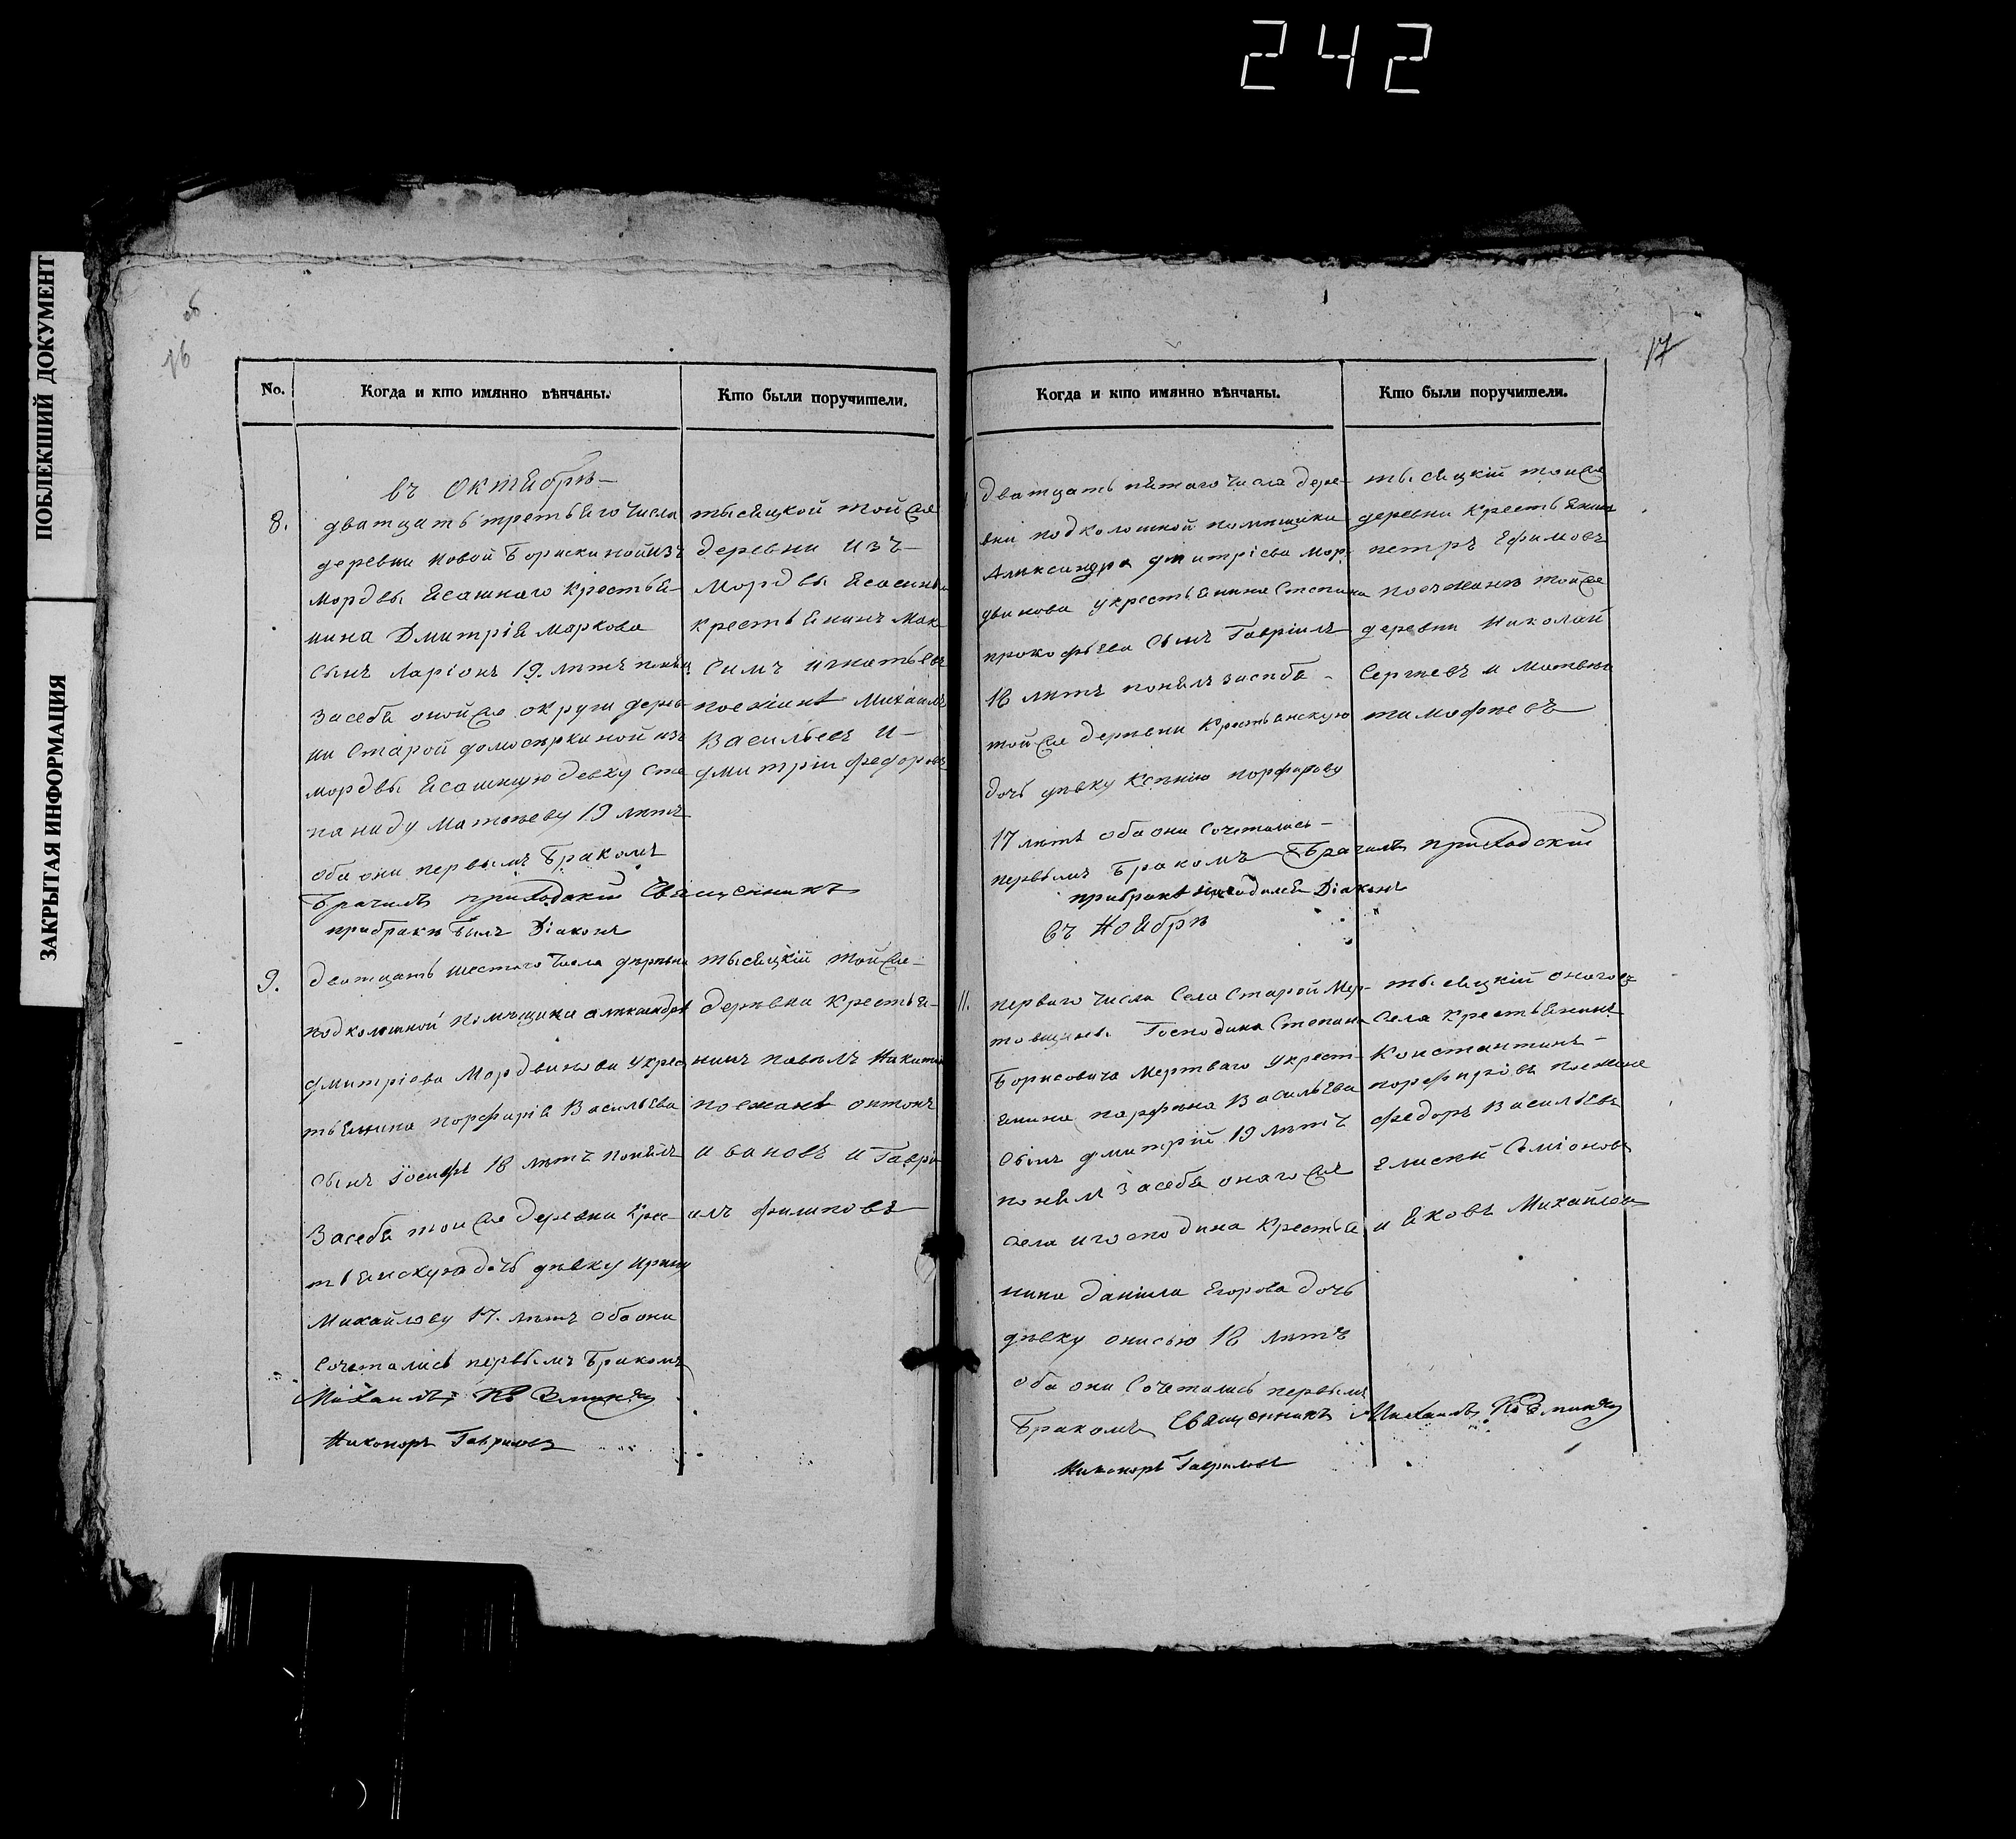 242
ПОБЛЕКШИЙ ДОКУМЕНТ
ЗАКРЫТАЯ ИНФОРМАЦИЯ
об
16
No.
Когда и кто имянно вѣнчаны.
Кто были поручители.
въ Октябрѣ
8.
дватцать третьяго числа
деревни Новой Борискиной изъ
мордвы Ясашнаго крестья-
нина Дмитрія Маркова
сынъ Ларіонъ 19. лѣтъ понялъ
за себя оной же округи дерев-
ни Старой домосеркиной изъ
мордвы Ясашную девку Сте
паниду Матвѣеву 19 лѣтъ
оба они первымъ бракомъ
Брачилъ приходскій Священникъ
при бракѣ былъ Діаконъ
тысяцкой той же
деревни изъ
Мордвы Ясашный
крестьянинъ Мак
симъ игнатьевъ
поежанѣ Михаилъ
Васильевъ и
дмитріи федоровъ
9.
дватцать шестаго числа деревни
подколошной помѣщика александра
дмитріева Мордвинова у крес
тьянина порфирія Васильева
сынъ Іосифъ 18 лѣтъ понялъ
За себя той же деревни крес-
тьянскую дочь дѣвку ирину
Михайлову 17. лѣтъ оба они
сочетались первымъ бракомъ
Михаилъ Козминъ
Никоноръ Гавриловъ
тысяцкій той же
деревни крестья-
нинъ павелъ Никитинъ
поежанѣ онтонъ
ивановъ и Гаври
илъ филиповъ
17
Когда и кто имянно вѣнчаны.
Кто были поручители.
дватцать пятаго числа дере-
вни подколошной помѣщика
Александра дмитріева Мор-
двинова у крестьянина Степана
прокофьева сынъ Гавріилъ
18 лѣтъ понялъ за себя
той же деревни крестьянскую
дочь дѣвку Ксенію порфирову
17 лѣтъ оба они сочетались
первымъ бракомъ Брачилъ приходскій
при бракѣ находился Діаконъ
тысяцкій той же
деревни крестьянинъ
петръ Ефимовъ
поежанѣ той же
деревни Николай
Сергѣевъ и матвѣй
тимофѣевъ
въ Ноябрѣ
11.
перваго числа Села Старой Мер-
товщины Господина Степана
Борисовича Мертваго у крест-
янина парфена Васильева
сынъ дмитрій 19 лѣтъ
понялъ за себя онаго же
села и господина крестья
нина даніила Егорова дочь
дѣвку онисью 18 лѣтъ
оба они сочетались первымъ
бракомъ Священникъ Михаилъ Козминъ
Никоноръ Гавриловъ
тысяцкій онагожъ
села крестьянинъ
Константинъ
порфировъ поежанѣ
федоръ Васильевъ
Елисей Семіоновъ
и Яковъ Михайловъ